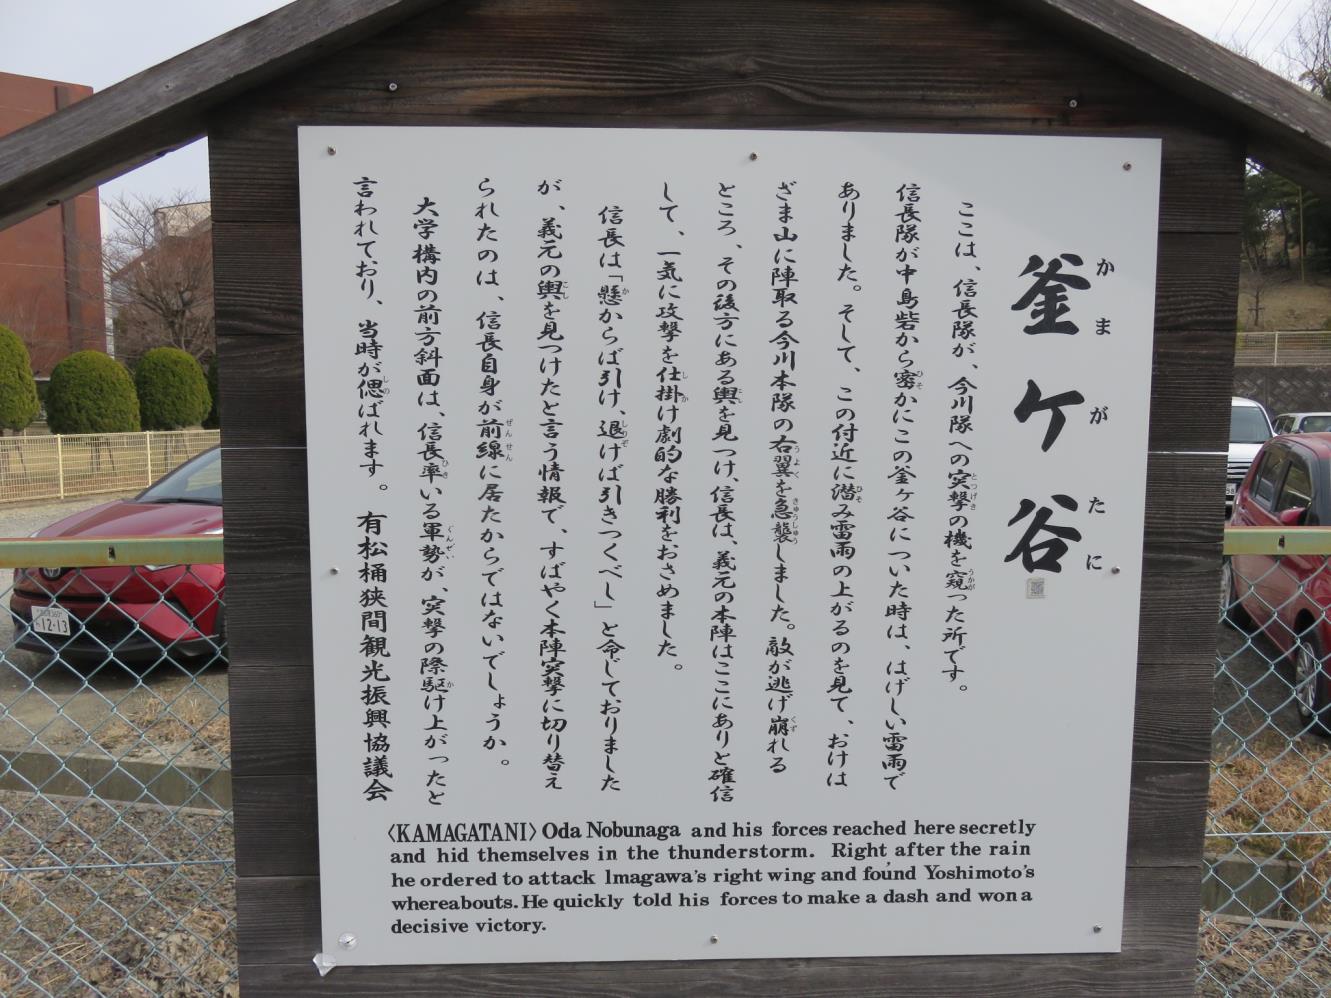 釜ケ谷
かまがたに
ここは、信長隊が、今川隊への突撃の機を窺った所です。
信長隊が中島砦から密かにこの釜ヶ谷についた時は、はげしい雷雨で
ありました。そして、この付近に潜み雷雨の上がるのを見て、おけは
ざま山に陣取る今川本隊の右翼を急襲しました。敵が逃げ崩れる
ところ、その後方にある輿を見つけ、信長は、義元の本陣はここにありと確信
して、一気に攻撃を仕掛け劇的な勝利をおさめました。
信長は「懸からば引け、退けば引きつくべし」と命じておりました
が、義元の輿を見つけたと言う情報で、すばやく本陣突撃に切り替え
られたのは、信長自身が前線に居たからではないでしょうか。
大学構内の前方斜面は、信長率いる軍勢が、突撃の際駆け上がったと
言われており、当時が偲ばれます。 有松桶狭間観光振興協議会
〈KAMAGATANI〉 Oda Nobunaga and his forces reached here secretly
and hid themselves in the thunderstorm. Right after the rain
he ordered to attack Imagawa's right wing and found Yoshimoto's
whereabouts. He quickly told his forces to make a dash and won a
decisive victory.
12-13